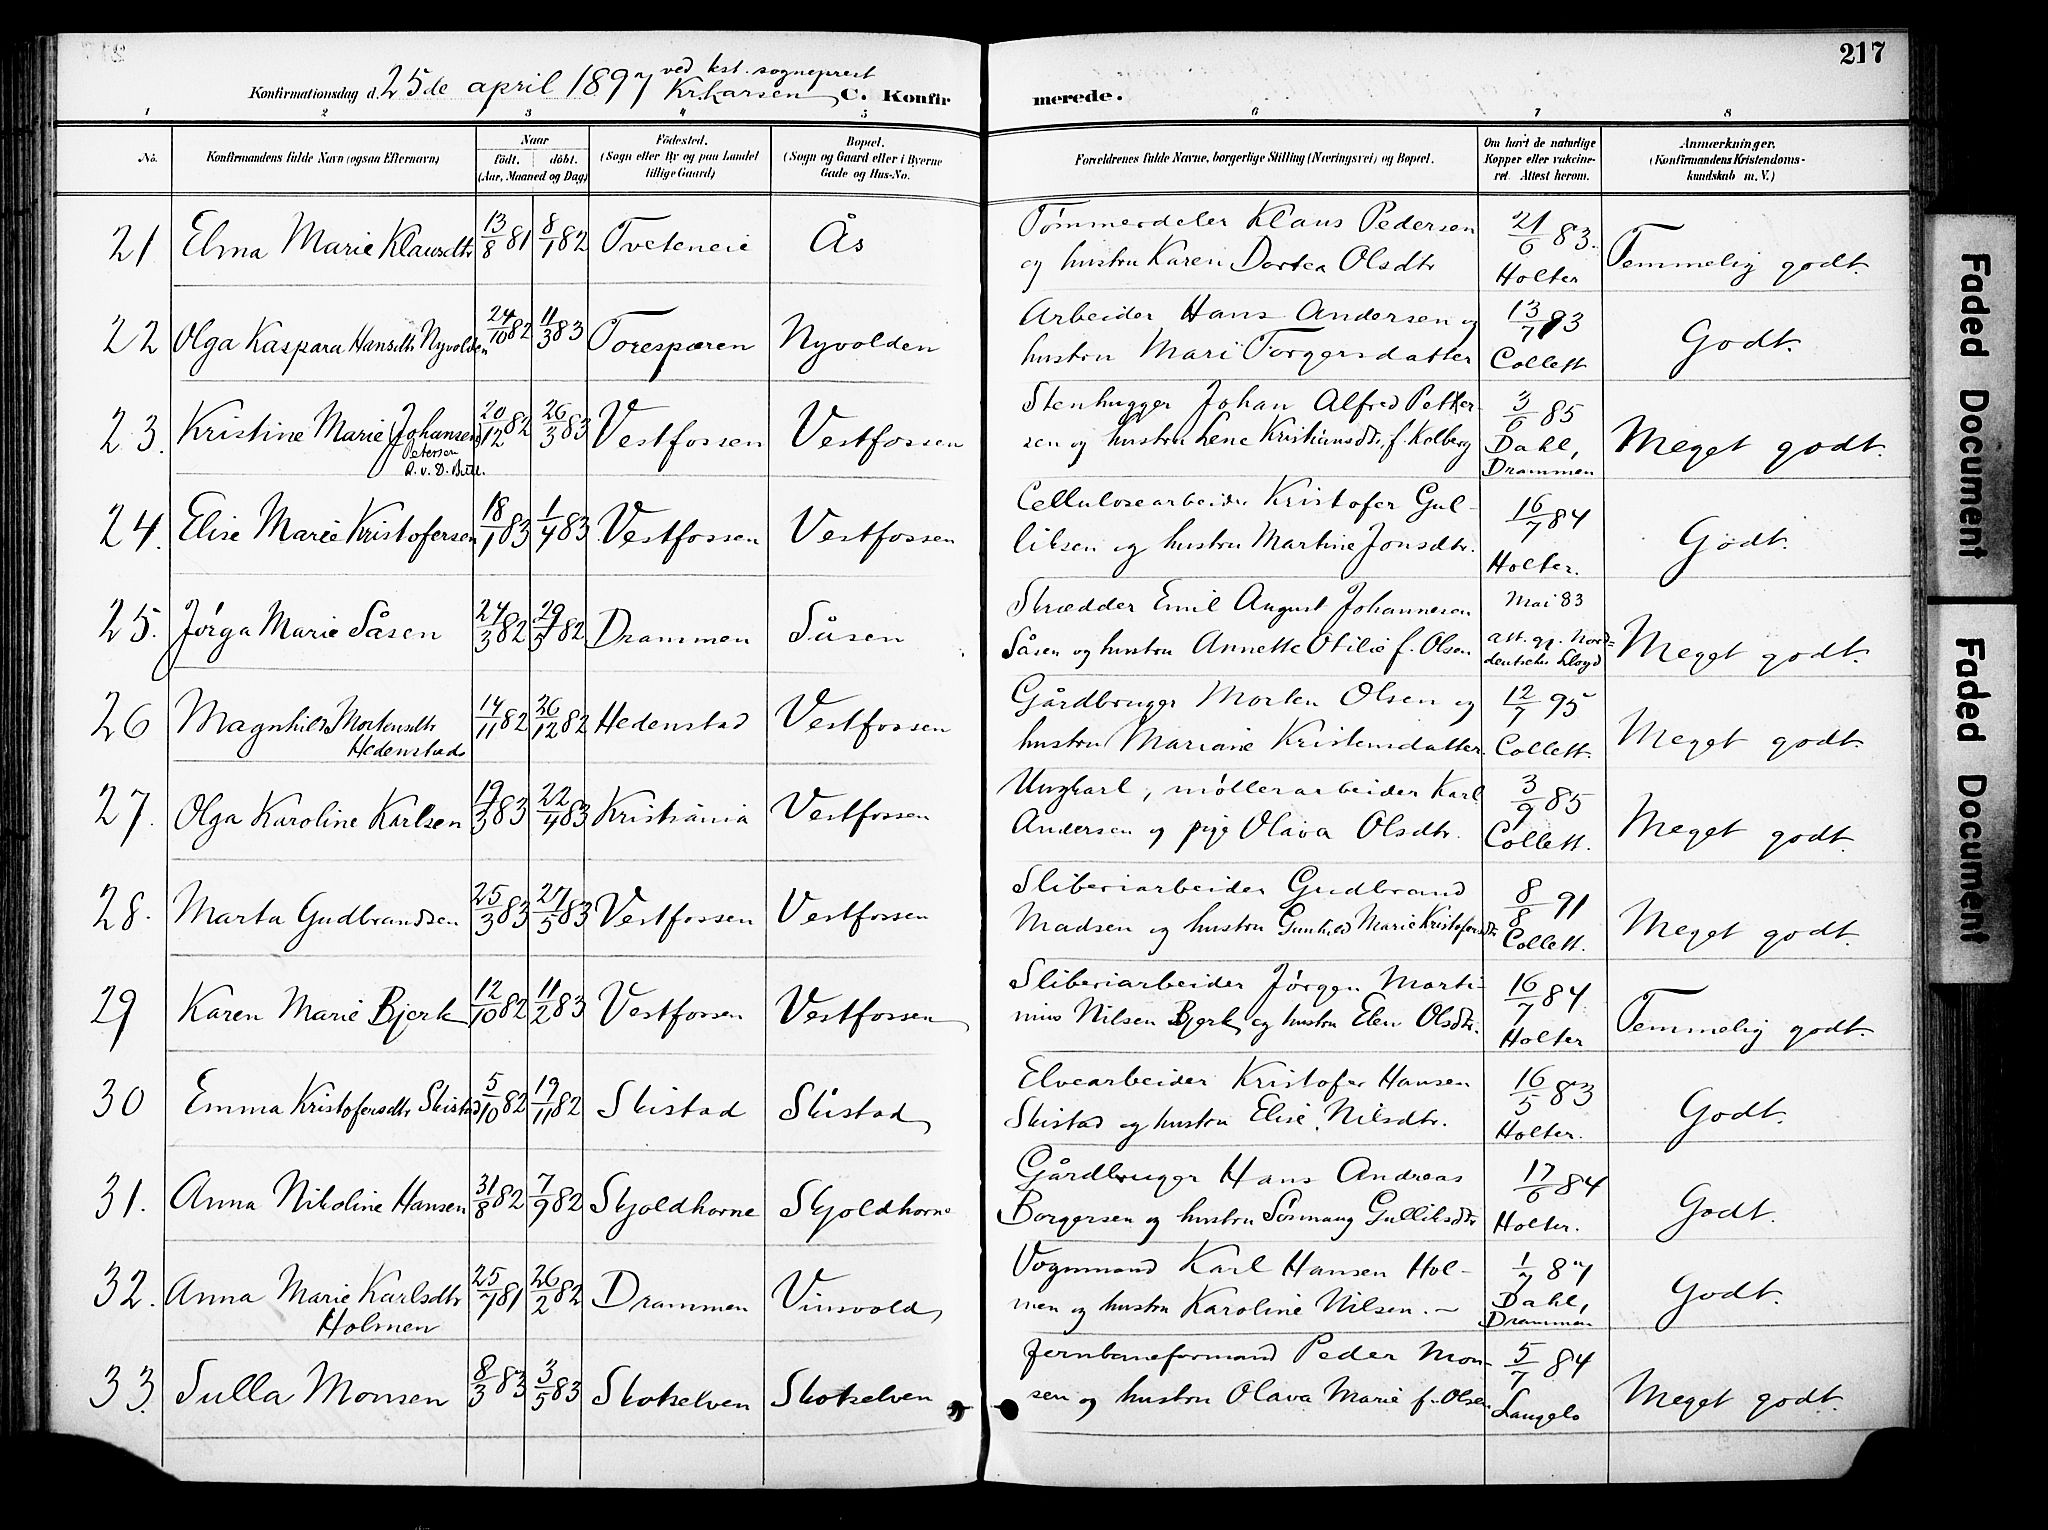 217
Konfirmationsdag d. 25de april 1897 ved kst. sogneprest
Kr. Larsen C. Konfirmerede.
1 2 3 4 5 6 7 8
No.
Konfirmandens fulde Navn (ogsaa Efternavn)
Naar
født. døbt.
(Aar, Maaned og Dag)
Födested.
(Sogn eller By og paa Landet
tillige Gaard)
Bopæl.
(Sogn og Gaard eller i Byerne
Gade og Hus-No.
Forældrenes fulde Navne, borgerlige Stilling (Næringsvei) og Bopæl.
Om havt de naturlige
Kopper eller vakcine-
ret. Attest herom.
Anmærkninger.
(Konfirmandens Kristendoms-
kundskab m. V.)
21 Elma Marie Klausdtr 13/8 81 8/1 82 Tveteneie Ås
Tømmerdeler Klaus Pedersen
og hustru Karen Dortea Olsdtr
21/6 83.
Holter
Temmelig godt.
22 Olga Kaspara Hansdtr Nyvolden 24/10 82 11/3 83 Torespæren Nyvolden
Arbeider Hans Andersen og
hustru Mari Torgersdatter
13/7 93
Collett
Godt.
23. Kristine Marie Johansen 20/12 82 26/3 83 Vestfossen Vestfossen
Petersen
Stenhugger Johan Alfred Petter-
sen og hustru Lene Kristiansdtr. f. Kolberg
3/6 85
Dahl,
Drammen
Meget godt.
24. Elise Marie Kristofersen 18/1 83 1/4 83 Vestfossen Vestfossen
Cellulosearbeider Kristofer Gul-
liksen og hustru Martine Jonsdtr.
16/7 84
Holter.
Godt.
25. Jørga Marie Såsen 24/3 82 29/5 82 Drammen Såsen
Skrædder Emil August Johannesen
Såsen og hustru Annette Otilie f. Olsen
Mai 83
att. gg. Nord-
deutscher Lloyd
Meget godt.
26 Magnhild Mortensdtr 14/11 82 26/12 82 Hedenstad Vestfossen
Hedenstad
Gårdbruger Morten Olsen og
hustru Mariane Kristensdatter
12/7 95
Collett.
Meget godt.
27. Olga Karoline Karlsen 19/3 83 22/4 83 Kristiania Vestfossen
Ungkarl, møllerarbeider Karl
Andersen og pige Olava Olsdtr.
3/9 85
Collett.
Meget godt.
28. Marta Gudbrandsen 25/3 83 27/5 83 Vestfossen Vestfossen
Sliberiarbeider Gudbrand
Madsen og hustru Gunhild Marie Kristofersdtr
8/8 91
Collett.
Meget godt.
29 Karen Marie Bjerk 12/10 82 11/2 83 Vestfossen Vestfossen
Sliberiarbeider Jørgen Marti-
nius Nilsen Bjerk og hustru Elen Olsdtr.
16/7 84
Holter
Temmelig godt.
30 Emma Kristofersdtr Skistad 5/10 82 19/11 82 Skistad Skistad
Elvearbeider Kristofer Hansen
Skistad og hustru Elise Nilsdtr.
16/5 83
Holter.
Godt.
31. Anna Nikoline Hansen 31/8 82 7/9 82 Skjoldhorne Skjoldhorne
Gårdbruger Hans Andreas
Borgersen og hustru Gulliksdtr
17/6 84
Holter.
Godt.
32. Anna Marie Karlsdtr 25/7 81 26/2 82 Drammen Vinsvold
Holmen
Vognmand Karl Hansen Hol-
men og hustru Karoline Nilsen. —
1/7 87
Dahl,
Drammen
Godt.
33. Sulla Monsen 8/3 83 3/5 83 Skotselven Skotselven
Jernbaneformand Peder Mon-
sen og hustru Olava Marie f. Olsen
5/7 84
Langelo
Meget godt.
Faded Document
Faded Document